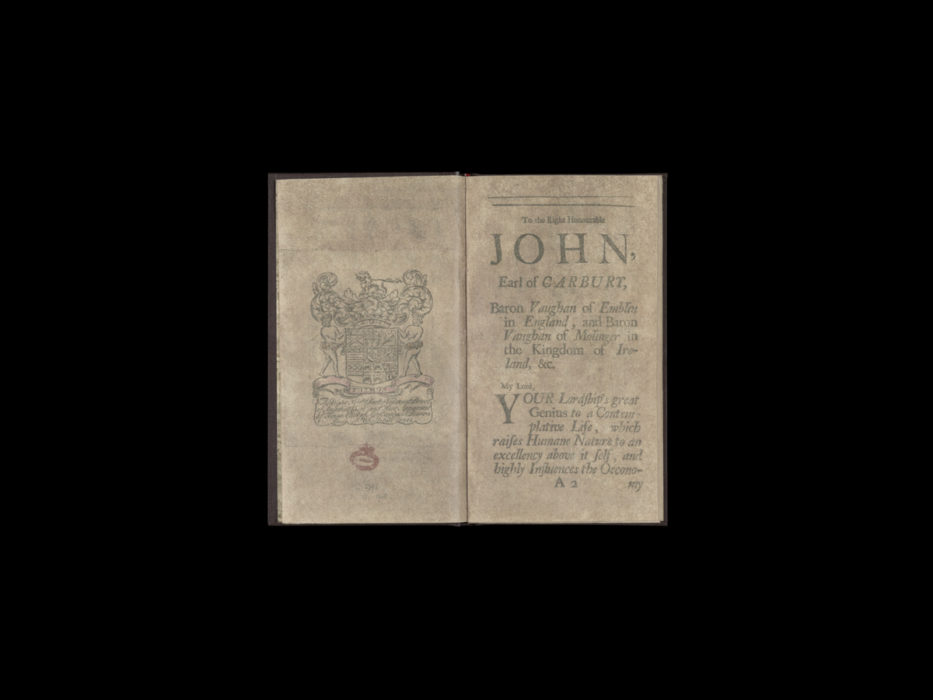 To the Right Honourable
JOHN,
Earl of CARBURY,
Baron Vaughan of Emblen
in England, and Baron
Vaughan of Molinger in
the Kingdom of Ire-
land, &c.
My Lord,
YOUR Lordship's great
Genius to a Contem-
plative Life, which
raiſes Humane Nature to an
excellency above it ſelf, and
highly Influences the Oecono-
A 2 my